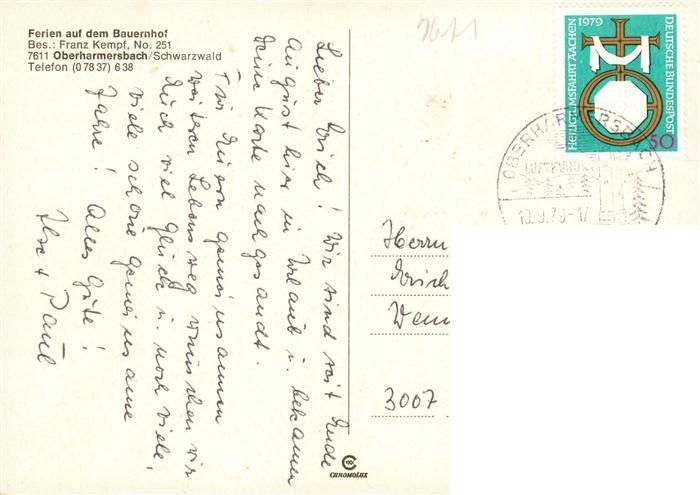 Ferien auf dem Bauernhof
Bes.: Franz Kempf, No. 251
7611 Oberharmersbach/Schwarzwald
Telefon (0 78 37) 6 38
Lieber Erich! Wir sind seit Ende
August hier in Urlaub u. bekamen
Deine Karte nachgesandt.
Für Euren gemeinsamen
weiteren Lebensweg wünschen wir
Euch viel Glück u. noch viele,
viele schöne gemeinsame
Jahre! Alles Gute!
Ilse + Paul
CHROMOLUX
7611
HEILIGTUMSFAHRT AACHEN 1979
DEUTSCHE BUNDESPOST
50
OBERHARMERSBACH
LUFTKURORT
10.9.79-17
Herrn
Erich
3007